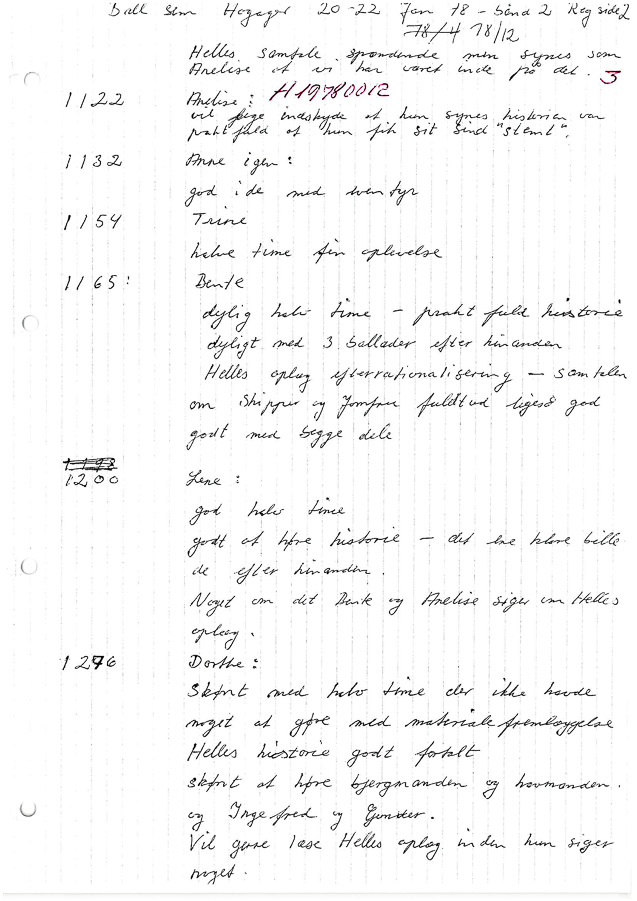 Ball sem Hogager 20-22 Jan 78 - bånd 2 Reg side 2
78/4 78/12
Helles samtale spændende men synes som
Anelise at vi har været inde på det. 3
1122 Anelise: H19780012
vil lige indskyde at hun synes historien var
prakt fuld at hun fik sit sind "stemt".
1132 Anne igen:
god ide med eventyr
1154 Trine
halve time fin oplevelse
1165: Bente
dejlig halv time - prakt fuld historie
dejligt med 3 ballader efter hinanden
Helles oplæg efterrationalisering - samtalen
om Skipper og Jomfru fuldt ud ligeså god
godt med begge dele
1198
1200 Lene:
god halv time
godt at høre historie - det ene klare bille
de efter hinanden.
Noget om det Bente og Anelise siger om Helles
oplæg.
1276 Dorthe:
Skønt med halv time der ikke havde
noget at gøre med materiale fremlæggelse
Helles historie godt fortalt
skønt at høre bjergmanden og havmanden.
og Ingefred og Gunder.
Vil gerne læse Helles oplæg inden hun siger
noget.